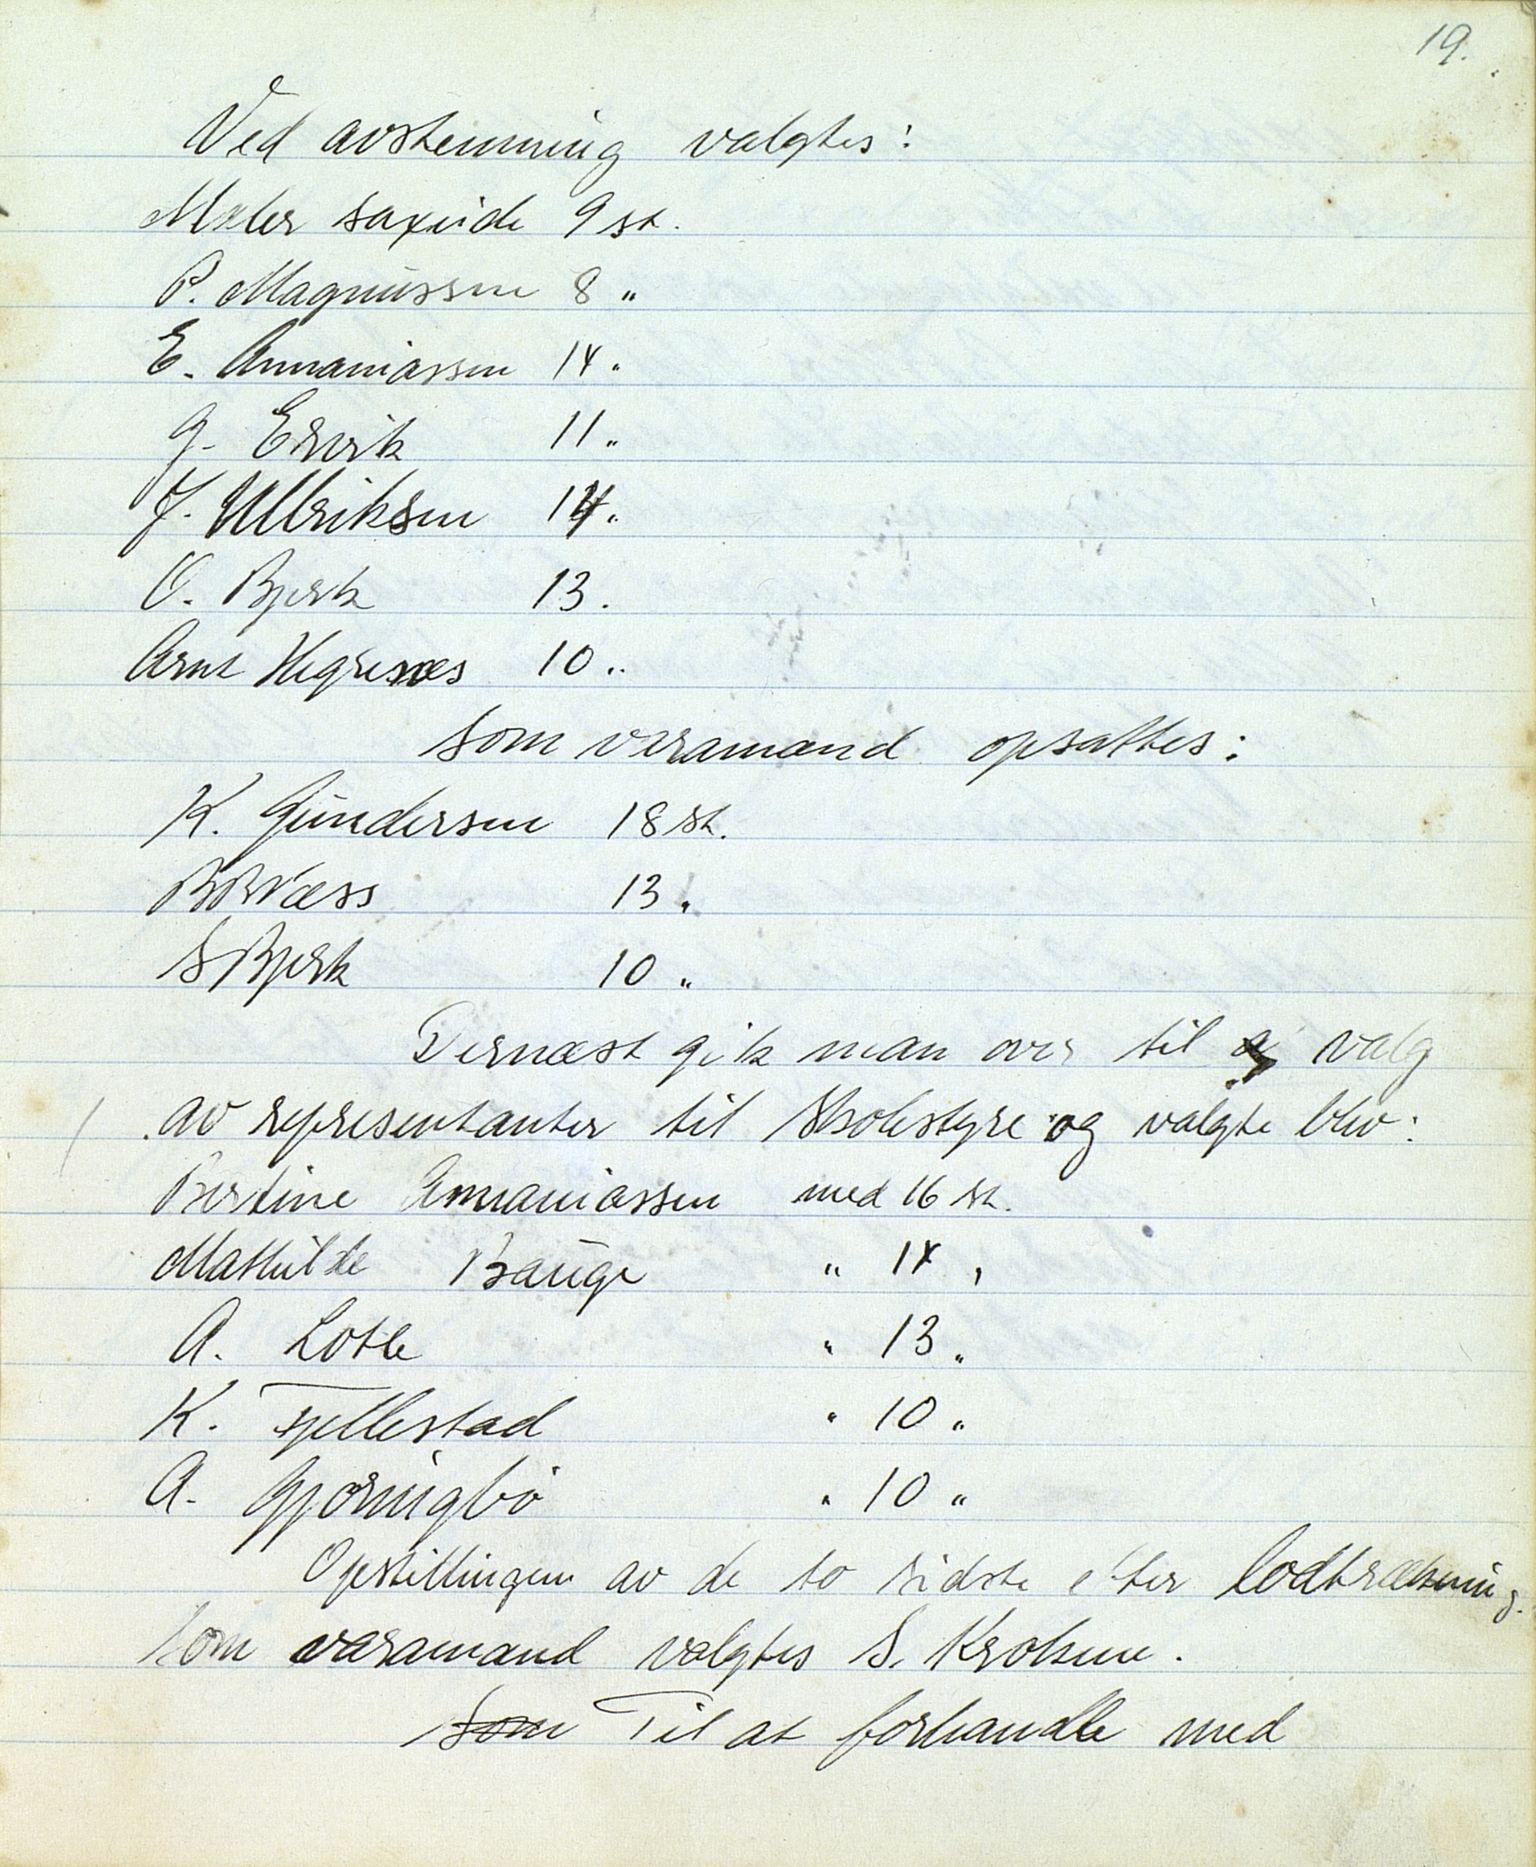 19.
Ved avstemning valgtes:
Maler Saxeide 9 st.
P. Magnussen 8 "
E. Annaniassen 14 "
G. Ervik 11 "
J. Ullriksen 14 "
O. Bjerk 13 .
Arnt Hegrenæs 10 "
Som varamænd opsattes:
K. Gundersen 18 st.
B Næss 13 "
S Bjerk 10 "
Dernæst gik man over til valg
av representanter til Skolestyre og valgte blev:
Bertine Annaniassen med 16 st.
Mathilde Bauge " 14 "
A. Lothe " 13 "
K. Tjellestad " 10 "
A. Gjøringbö " 10 "
Opstillingen av de to sidste efter lodtrækning.
Som varamænd valgtes S. Kroken.
Som Til at forhandle med